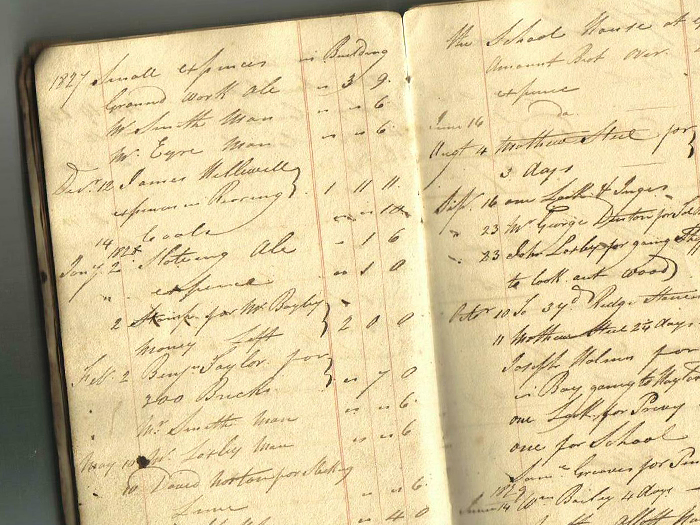 1827 Small expences in Building
Ground work Ale " 3 9
Mr. Smith Man " " 6
Mr. Eyre Man " " 6
Decr. 12 James Helliwell
expences in Rearing } 1 11 11
14 Coals " " 10
1828
Jany 2 Ale " 1 6
" expence " 1 0
2 for Mr. Bayley
money Left } 2 0 0
Feb. 2 Benjn. Taylor for
200 Bricks } " 7 0
Mr. Smith Man " " 6
May 10 Mr. Loxby Man " " 6
10 David Norton for
Lime " " 6
" 4 0
the School House at
Amount Brot over
expence
June 16 do.
Augt 4 Mathew Steel for
3 days
Sept. 16 one Lock & Jinges
" 23 Mr. George for
" 23 John Loxby for going
to look out wood
Octor 10 To 3 yd Ridge
11 Mathew Steel 24 days
Joseph Holmes for
in Bay going to
one Lock for Privy
one for School
Saml. Greaves for
1829
14 Wm. Bailey 4 days